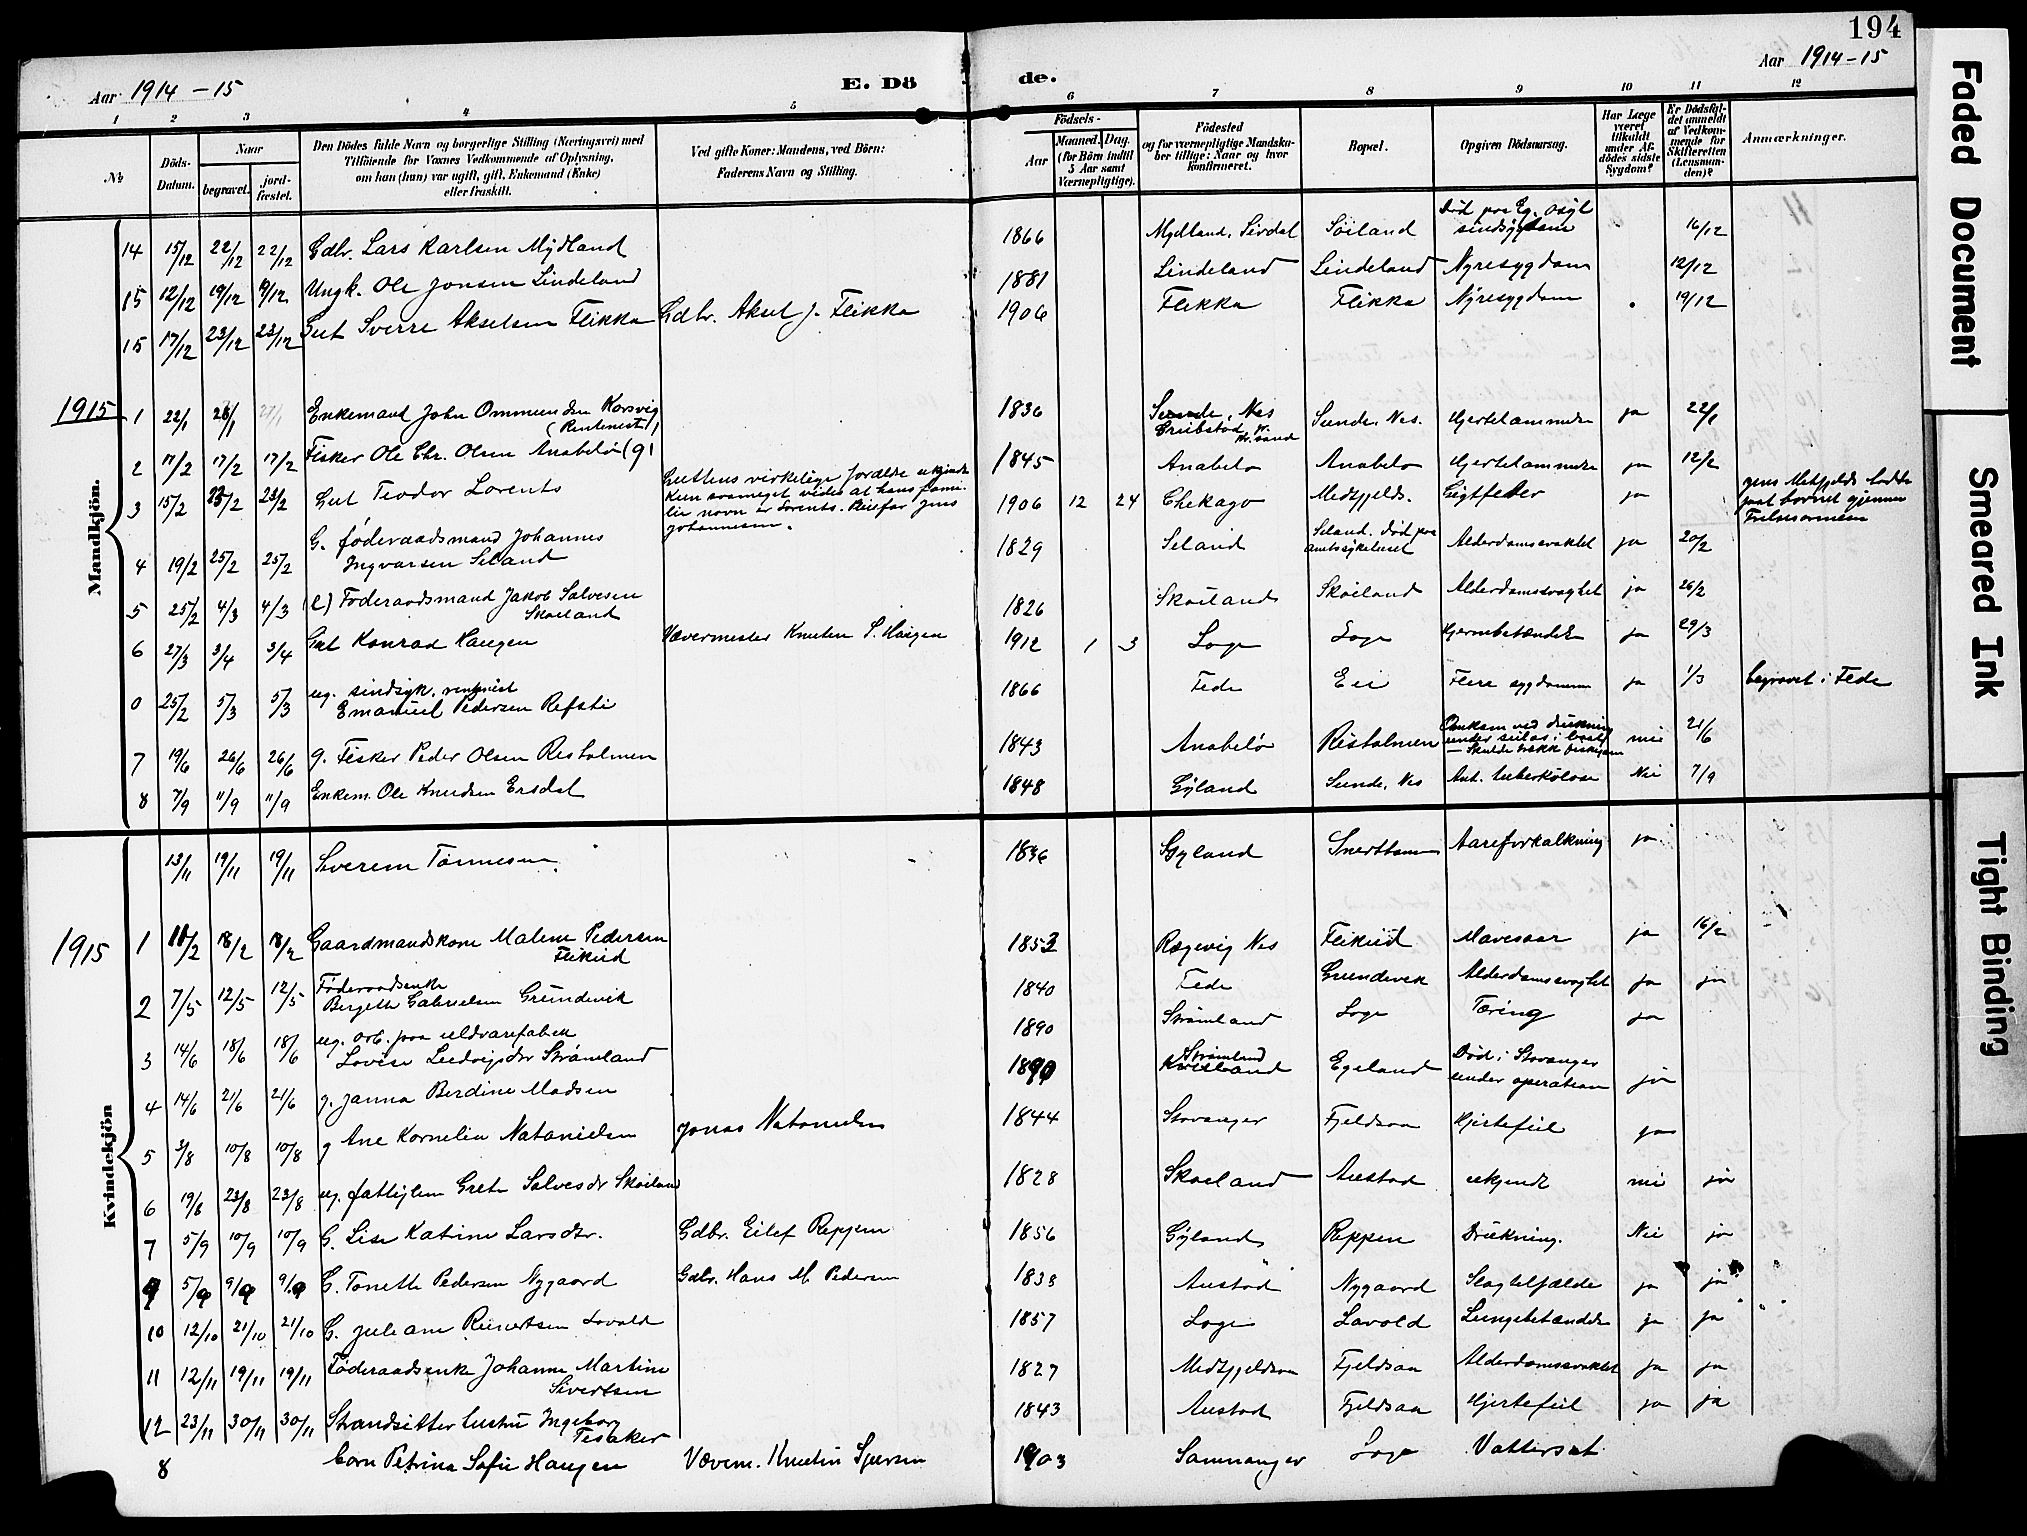 194
Aar 1914-15
E. Dö
de.
Aar 1914-15
1 2 3 4 5 6 7 8 9 10 11 12
№
Döds-Datum.
Naar
begravet.
jord-fæstet.
Den Dödes fulde Navn og borgerlige Stilling (Næringsvei) med
Tilföiende for Voxnes Vedkommende af Oplysning,
om han (hun) var ugift, gift, Enkemand (Enke)
eller fraskilt.
Ved gifte Koner: Mandens, ved Börn:
Faderens Navn og Stilling.
Födsels-
Aar
Maaned. Dag.
(for Börn indtil
5 Aar samt
Værnepligtige).
Födested
og for værnepligtige Mandska-
ber tillige: Naar og hvor
konfirmeret.
Bopæl.
Opgiven Dödsaarsag.
Har Læge
været
tilkaldt
under Af-
dödes sidste
Sygdom?
Er Dödsfal-
det anmeldt
af Vedkom-
mende for
Skifteretten
(Lensman-
den)?
Anmærkninger.
Mandkjön.
14 15/12 22/12 22/12 Gdbr. Lars Karlsen Mydland 1866 Mydland, Sirdal Söiland Död paa Eg. asyl sindsygdom 16/12
15 12/12 19/12 19/12 Ungk. Ole Jonsen Lindeland 1881 Lindeland Lindeland Nyresygdom 12/12
15 17/12 23/12 23/12 Gut Sverre Akselsen Flikka Gdbr. Aksel J. Flikka 1906 Flikka Flikka Nyresygdom 19/12
1915
1 22/1 28/1 Enkemand John Ommundsen Korsvig (Rentenist) 1836 Sunde, Nes Sunde, Nes. Hjertelammelse ja 22/1
2 11/2 17/2 17/2 Fisker Ole Chr. Olsen Anabelö (g) 1845 Anabelö Anabelö Hjertelammelse ja 12/2
3 15/2 23/2 23/2 Gut Teodor Lorents Guttens virkelige forældre ukjendt
Kun saameget vides at hans fami-
lie navn er Lorents. Pleiefar Jens
Johannesen. 1906 12 24 Chekago Medfjelds. Gigtfeber ja
4 19/2 25/2 25/2 G. föderaadsmand Johannes
Ingvarsen Seland 1829 Seland Seland. död paa
amtssykehuset Alderdomssvakhet ja 20/2
5 25/2 4/3 4/3 (E) Föderaadsmand Jakob Salvesen
Skoiland 1826 Skoiland Skoiland Alderdomssvaghet ja 26/2
6 27/3 3/4 3/4 Gut Konrad Haugen Vævermester Knuten S. Haugen 1912 1 3 Loge Loge Hjernebetændelse ja 29/3
0 25/2 5/3 5/3 ug. sindsyk. rentenist
Emanuel Pedersen Refsti 1866 Fede Eie Flere sygdomme ja 1/3 begravet i Fede
7 19/6 26/6 26/6 g. Fisker Peder Olsen Risholmen 1843 Anabelö Risholmen Omkom ved drukning
under seilas i baad nei 21/6
8 7/9 11/9 11/9 Enkem. Ole Knudsen Ersdal 1848 Gyland Sunde, Nes Ant. tuberkulose Nei 7/9
Kvindekjön
13/11 19/11 19/11 Sverem Tönnesen 1836 Gyland Aareforkalkning ja
1915
1 11/2 18/2 18/2 Gaardmandskone Malene Pedersen
Fleikeid 1853 Rægevig Nes Fleikeid Mavesaar ja 16/2
2 7/5 12/5 12/5 Föderaadsenke
Bergette Gabrielsen Grundevik 1840 Fede Grundevik Alderdomssvaghet ja ja
3 14/6 18/6 18/6 ug. arb. paa uldvarefabrik
Lovise Ludvigsdr Strömland 1890 Strömland Loge Tæring ja
4 14/6 21/6 21/6 g. Janna Berdine Madsen 1890 Strömland Egeland Död i Stavanger
under operation ja
5 3/8 10/8 10/8 g Ane Kornelia Natanielsen Jonas Natanielsen 1844 Stavanger Fjeldsaa Hjertefeil ja
6 19/8 23/8 23/8 ug. fattiglem Grete Salvesdr Skoiland 1828 Skoeland Austad ukjendt nei ja
7 5/9 10/9 10/9 G. Lise Katrine Larsdtr. Gdbr. Eilef Reppen 1856 Gyland Reppen Drukning. Nei ja
9 5/9 9/9 9/9 G. Tonette Pedersen Nygaard Gdbr. Hans M. Pedersen 1833 Austad Nygaard Slagtilfælde ja ja
10 12/10 21/10 21/10 G. Juleane Reinertsen Lovold 1857 Loge Lavold Lungebetændelse ja ja
11 12/11 19/11 19/11 Föderaadsenke Johanne Martine
Sivertsen 1827 Medfjeldsaa Fjeldsaa Alderdomssvakhet ja ja
12 23/11 30/11 30/11 Strandsitterhustru Ingeborg
Tesaker 1843 Austad Fjeldsaa Hjertefeil ja ja
8 barn Petrine Sofie Haugen Vævem. Knutin Sjursen 1903 Samnanger Loge Vattersot
Faded Document
Smeared Ink
Tight Binding